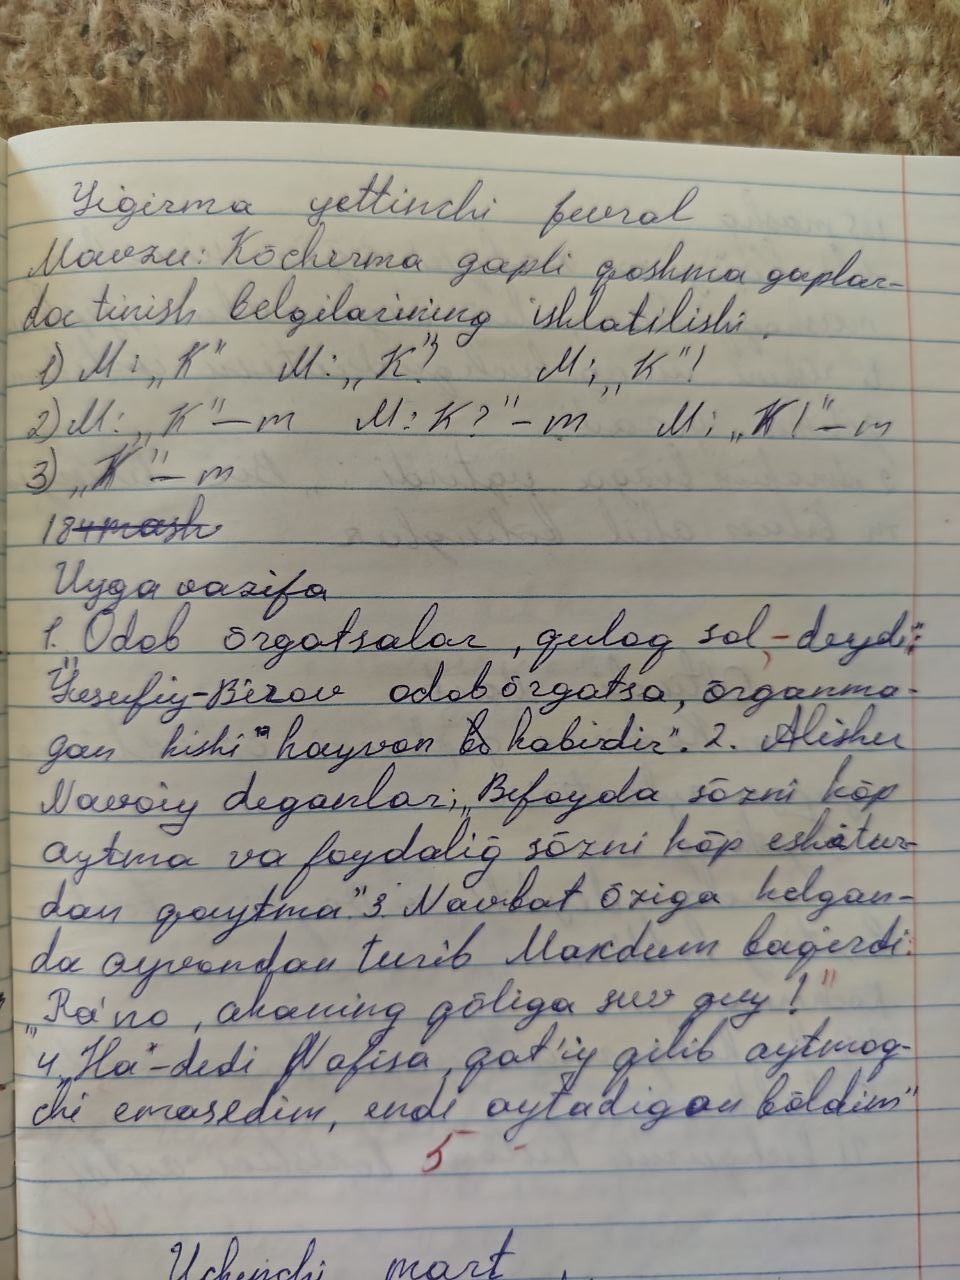 Yigirma yettinchi fevral
Mavzu: Kōchirma gapli qoshma gaplar-
da tinish belgilarining ishlatilishi.
1) M: „K" M: „K"? M: „K"!
2) M: „K" – m M: K?" – m" M: „K!" – m
3) „K" – m
184 mash
Uyga vazifa
1. Odob ōrgatsalar, quloq sol, - deydi:
"Yusufiy-Birov odob ōrgatsa, ōrganma-
gan kishi hayvon kabidir". 2. Alisher
Navoiy deganlar: „Befoyda sōzni kōp
aytma va foydaliğ sōzni kōp eshitur-
dan qaytma." 3. Navbat ōziga kelgan-
da ayvondan turib Makdum baqirdi:
„Ra'no, akaning qōliga suv quy!"
4. „Ha" - dedi Nafisa, qat'iy qilib aytmoq-
chi emasedim, endi aytadigan bōldim"
5
Uchinchi mart.